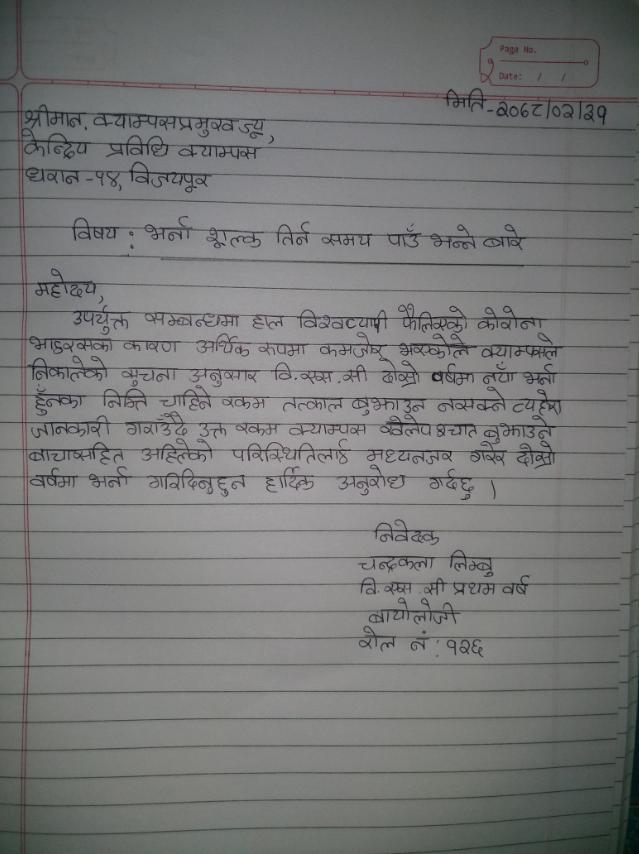 Page No.
Date: / /
मिति-२०७८/०२/२१
श्रीमान. क्याम्पसप्रमुखज्यू,
केन्द्रिय प्रविधि क्याम्पस
धरान -१४, विजयपूर
विषय : भर्ना शूल्क तिर्न समय पाउँ भन्ने बारे
महोदय,
उपर्युक्त सम्बन्धमा हाल विश्वव्यापी फैलिएको कोरोना
भाइरसको कारण आर्थिक रुपमा कमजोर भएकोले क्याम्पसले
निकालेको सुचना अनुसार वि.एस.सी दोस्रो वर्षमा नयाँ भर्ना
हुँनका निम्ति चाहिने रकम तत्काल बुझाउन नसक्ने व्यहोरा
जानकारी गराउँदै उक्त रकम क्याम्पस खोलेपश्चात बुझाउने
बाचासहित अहिलेको परिस्थितिलाई मध्यनजर गरेर दोस्रो
वर्षमा भर्ना गरिदिनुहुन हार्दिक अनुरोध गर्दछु ।
निवेदक
चन्द्रकला लिम्बु
वि.एस.सी प्रथम वर्ष
बायोलोजी
रोल नं : १२६